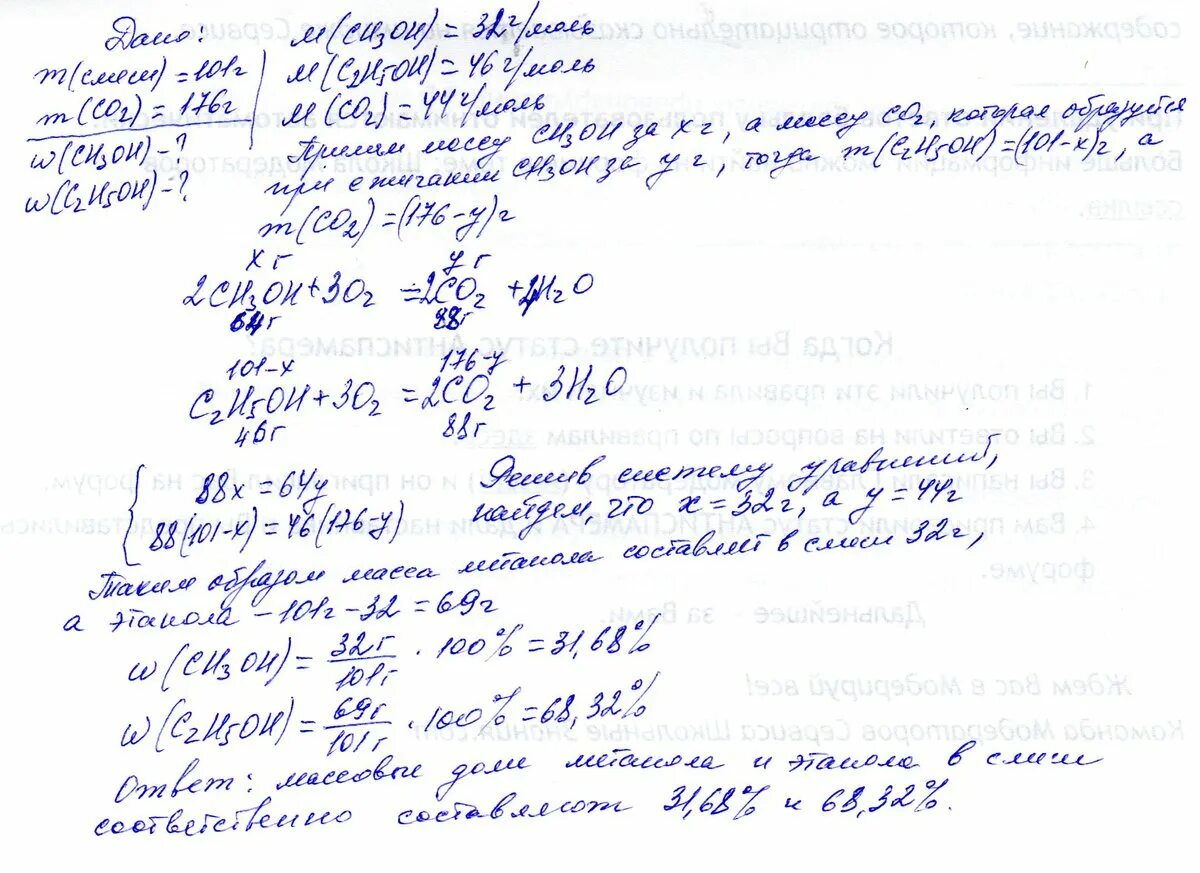 Дано:
m(смеси)=101г
m(CO2)=176г
w(CH3OH)-?
w(C2H5OH)=?
M(CH3OH)=32г/моль
M(C2H5OH)=46г/моль
M(CO2)=44г/моль
Примем массу CH3OH за xг, а массу CO2, которая образуется
при сжигании CH3OH за y г, тогда m(C2H5OH)=(101-x)г, а
m(CO2)=(176-y)г
xг yг
2CH3OH+3O2=2CO2+4H2O
64г 88г
101-x 176-y
C2H5OH+3O2=2CO2+3H2O
46г 88г
88x=64y
88(101-x)=46(176-y)
Решив систему уравнений,
найдем, что x=32г, а y=44г
Таким образом масса метанола составляет в смеси 32г,
а этанола -101г-32=69г
w(CH3OH)=32г/101г·100%=31,68%
w(C2H5OH)=69г/101г·100%=68,32%
Ответ: массовые доли метанола и этанола в смеси
соответственно составляют 31,68% и 68,32%.
содержание, которое отрицательно сказывается на Сервисе
Больше информации можно найти на форуме Школа модераторов
ссылка.
Когда Вы получите статус Антиспамера?
1. Вы получили эти правила и изучили их.
2. Вы ответили на вопросы по правилам здесь
3. Вы написали Главному модератору и он пригласил Вас на форум.
4. Вам присвоили статус АНТИСПАМЕРА и дали
форуме.
Дальнейшее - за Вами.
Ждем Вас в Модерируй все!
Команда Модераторов Сервиса Школьные Знания.com